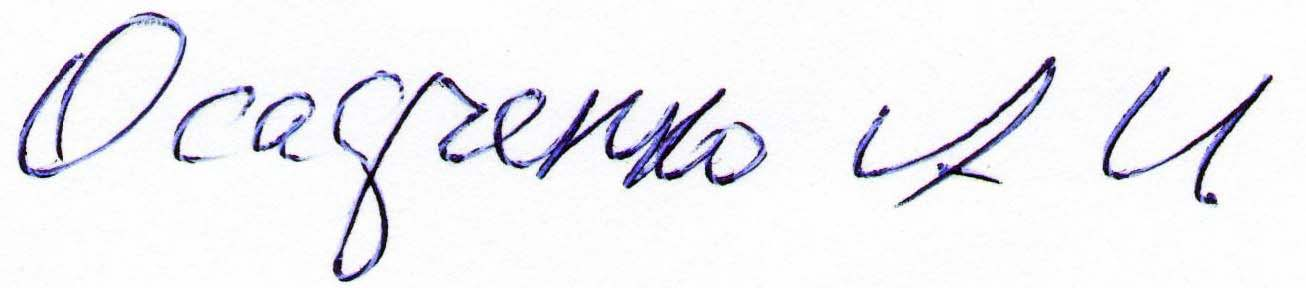 Осадченко А И.